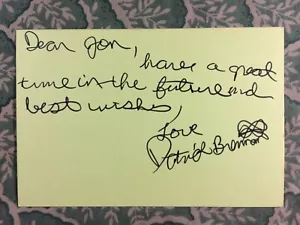 Dear Jon,
have a great
time in the future and
best wishes,
Love
Patrick Brennan